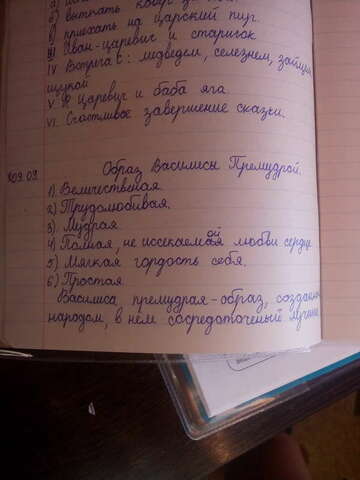 б) выткать ковёр
в) приехать на царский пир.
III Иван-царевич и старичок
IV Встреча с: медведем, селезнем, зайцем,
щукой
V И. Царевич и баба яга.
VI. Счастливое завершение сказки.
09.09 Образ Василисы Премудрой.
1) Величественная
2) Трудолюбивая.
3) Мудрая
4) Полная, не иссекаемой любви сердце
5) Мягкая гордость себя.
6) Простая
Василиса, премудрая-образ, создан
народом, в нем сосредоточеный лучшие